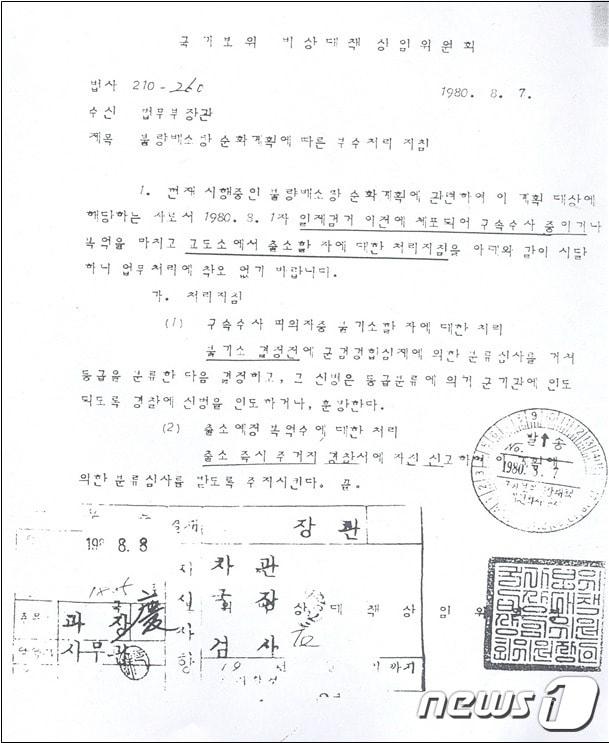 국가보위 비상대책 상임위원회
법사 210-260
1980. 8. 7.
수신 법무부장관
제목 불량배소탕 순화계획에 따른 부수처리 지침
1. 현재 시행중인 불량배소탕 순화계획에 관련하여 이 계획 대상에
해당하는 자로서 1980.8.1자 일제검거 이전에 체포되어 구속수사 중이거나
복역을 마치고 교도소에서 출소할 자에 대한 처리지침을 아래와 같이 시달
하니 업무처리에 착오 없기 바랍니다.
가. 처리지침
(1) 구속수사 피의자중 불기소할 자에 대한 처리
불기소 결정전에 군검경합심제에 의한 분류심사를 거쳐
등급을 분류한 다음 결정하고, 그 신병은 등급분류에 의거 군기관에 인도
되도록 경찰에 신병을 인도하거나, 훈방한다.
(2) 출소예정 복역수에 대한 처리
출소 즉시 주거지 경찰서에 자진 신고하여 이 계획에
의한 분류심사를 받도록 주지시킨다. 끝.
발송
No.
1980. 8. 7
장관
198 8.8
지시사항
차관
국장
상대책상임위원
과장
慶
검사
사무관
까지
news1